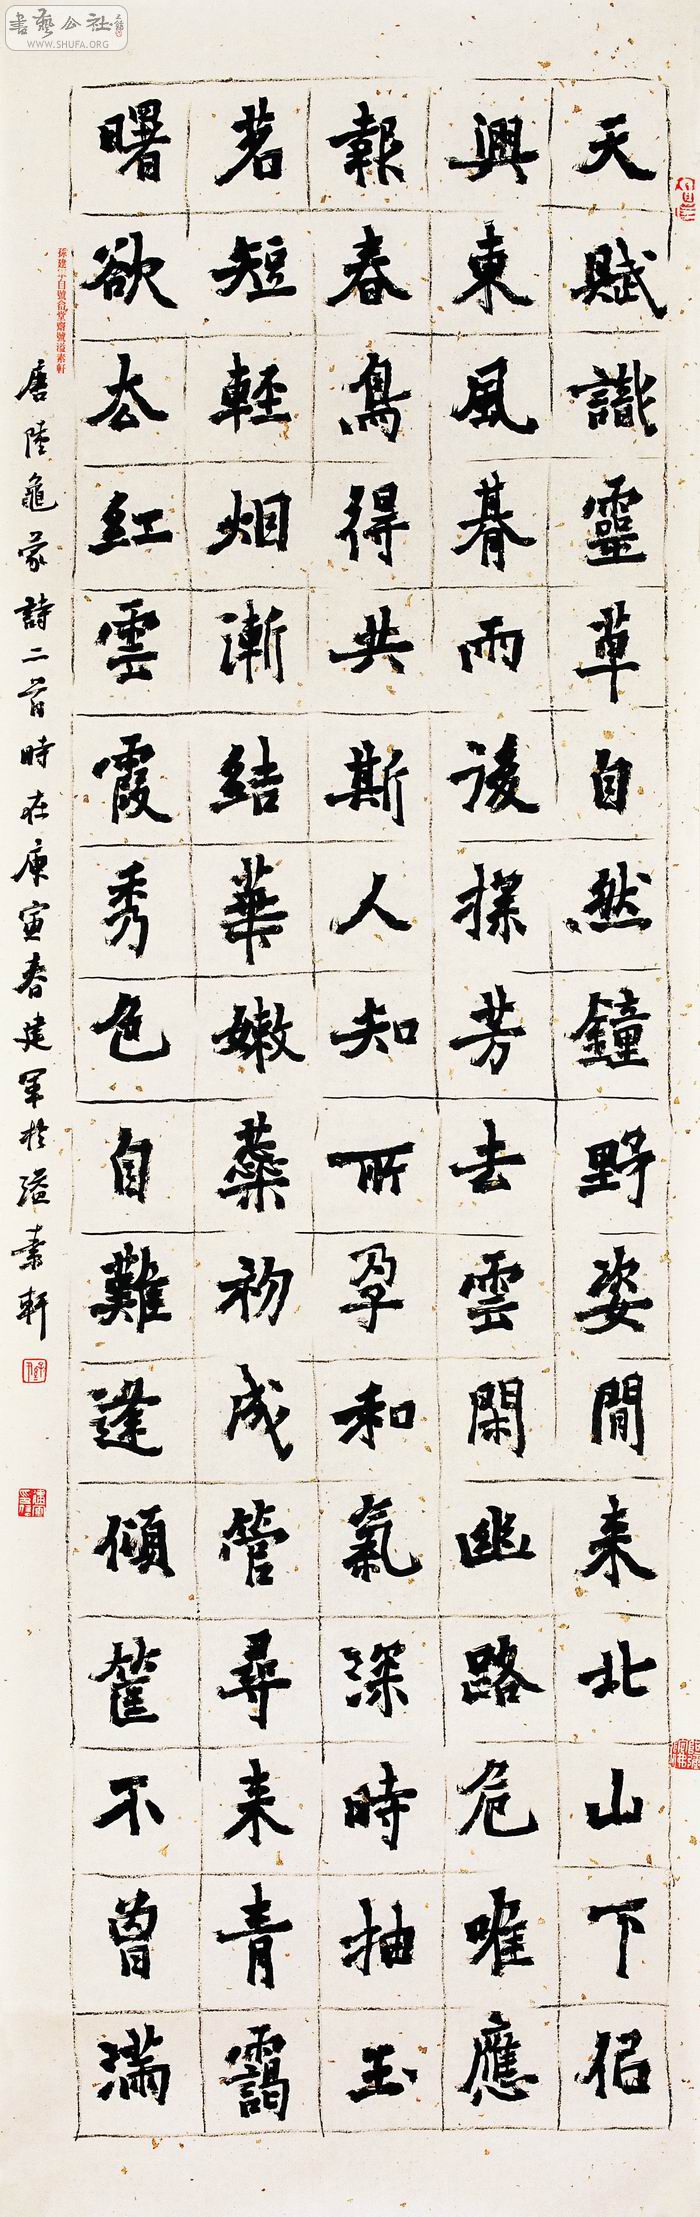 書藝公社
WWW.SHUFA.ORG
天賦識靈草自然鐘野姿閒来北山下佀
與東風朞雨後探芳去雲閑幽路危唯應
報春鳥得共斯人知所孕和氣深時抽玉
茗短輕烟漸結華嫩蘂初成管尋来青靄
曙欲去紅雲霞秀色自難逢傾筐不曾滿
孫建軍自號堂齋號溢素軒
唐陸龜蒙詩二首時在庚寅春建軍於溢素軒